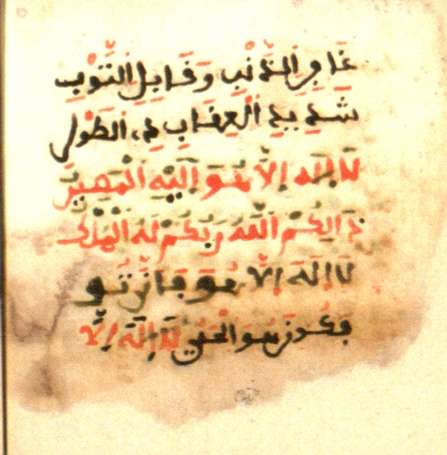 غَافِرِ الذَّنْبِ وَقَابِلِ التَّوْبِ
شَدِيدِ الْعِقَابِ ذِي الطَّوْلِ
لَا إِلَهَ إِلَّا هُوَ إِلَيْهِ الْمَصِيرُ
ذَالِكُمُ اللَّهُ رَبُّكُمْ لَهُ الْمُلْكُ
لَا إِلَهَ إِلَّا هُوَ فَأَنَّى تُو
فَكُونَ هُوَ الْحَيُّ لَا إِلَهَ إِلَّا